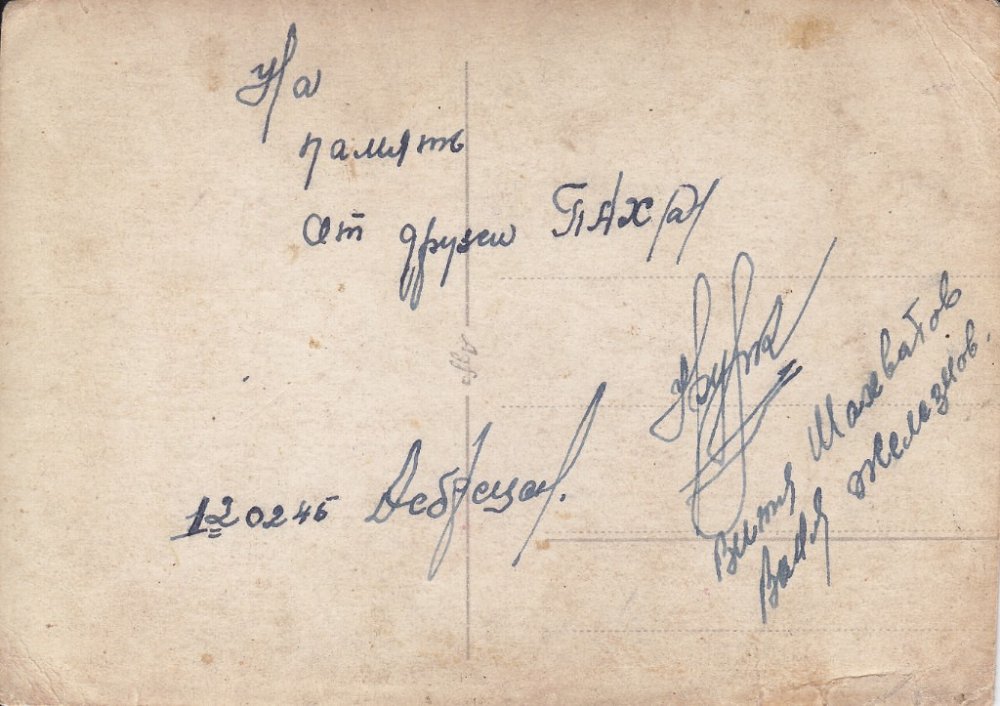 На
память
от друзей ПАХ
12 02 45 Дебрецен.
Витя Шахватов
Ваня Железнов.